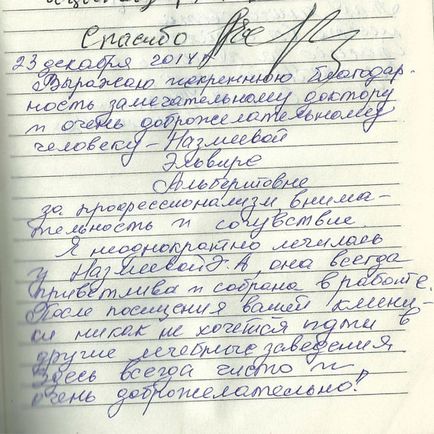 Спасибо
23 декабря 2014 г.
Выражаю искреннюю благодар-
ность замечательному доктору
и очень доброжелательному
человеку – Назмеевой
Эльвире
Альбертовне
за профессионализм внима-
тельность и сочувствие
Я неоднократно лечилась
у Назмеевой Э.А, она всегда
приветлива и собрана в работе.
После посещения вашей клини-
ки никак не хочется идти в
другие лечебные заведения.
Здесь всегда чисто и
очень доброжелательно!